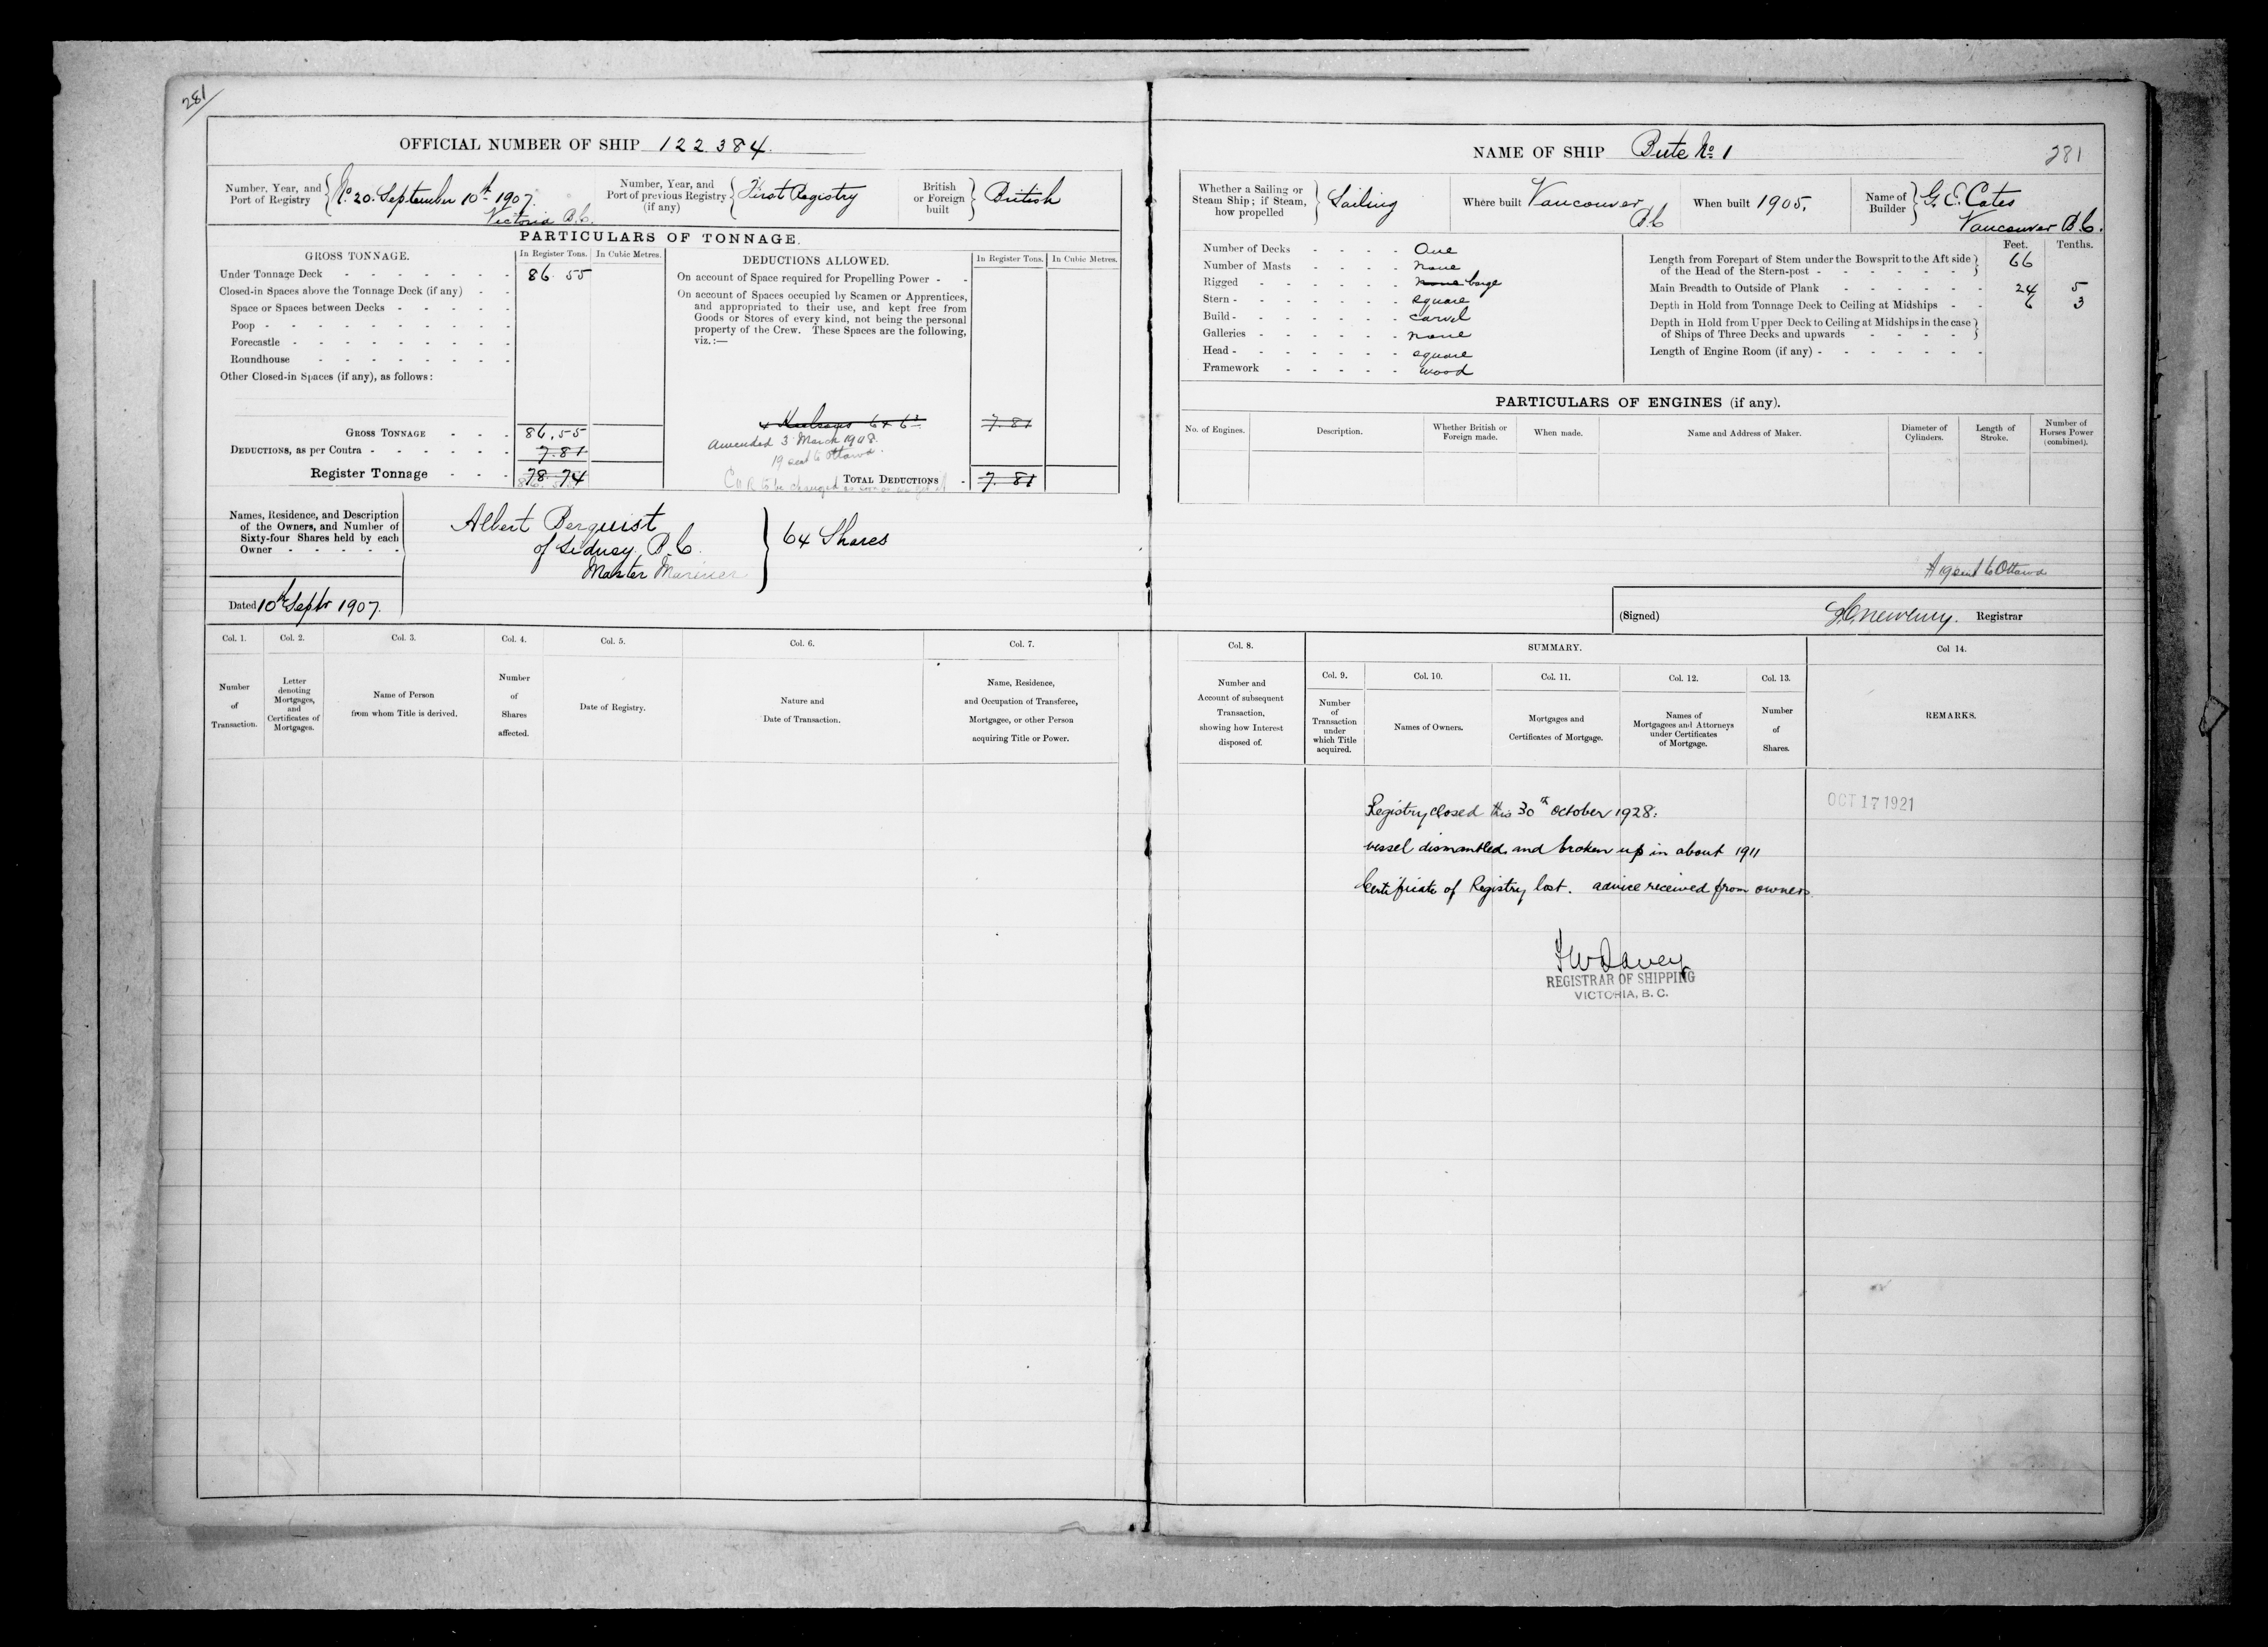 281
OFFICIAL NUMBER OF SHIP 122.384.
Number, Year, and Port of Registry
No. 20. September 10th 1907.
Victoria B.C.
Number, Year, and Port of previous Registry (if any)
First Registry
British or Foreign built
British
PARTICULARS OF TONNAGE.
GROSS TONNAGE.
In Register Tons.
In Cubic Metres.
Under Tonnage Deck 86.55
Closed-in Spaces above the Tonnage Deck (if any)
Space or Spaces between Decks
Poop
Forecastle
Roundhouse
Other Closed-in Spaces (if any), as follows:
GROSS TONNAGE 86.55
DEDUCTIONS, as per Contra 7.81
Register Tonnage 78.74
DEDUCTIONS ALLOWED.
In Register Tons.
In Cubic Metres.
On account of Space required for Propelling Power
On account of Spaces occupied by Seamen or Apprentices,
and appropriated to their use, and kept free from
Goods or Stores of every kind, not being the personal
property of the Crew. These Spaces are the following,
viz.:—
7.81
Amended 3 March 1908.
19 sent to Ottawa.
C of R to be changed as soon as
TOTAL DEDUCTIONS 7.81
Names, Residence, and Description
of the Owners, and Number of
Sixty-four Shares held by each
Owner
Albert Berquist
of Sidney, B.C.
Master Mariner
64 Shares
Dated 10th Septr 1907.
Col. 1. Number of Transaction.
Col. 2. Letter denoting Mortgages, and Certificates of Mortgages.
Col. 3. Name of Person from whom Title is derived.
Col. 4. Number of Shares affected.
Col. 5. Date of Registry.
Col. 6. Nature and Date of Transaction.
Col. 7. Name, Residence, and Occupation of Transferee, Mortgagee, or other Person acquiring Title or Power.
NAME OF SHIP Bute No 1
281
Whether a Sailing or Steam Ship; if Steam, how propelled
Sailing
Where built Vancouver B.C
When built 1905.
Name of Builder
G. E. Cates
Vancouver B.C.
Number of Decks One
Number of Masts None
Rigged none barge
Stern square
Build carvel
Galleries none
Head square
Framework wood
Feet. Tenths.
Length from Forepart of Stem under the Bowsprit to the Aft side
of the Head of the Stern-post 66
Main Breadth to Outside of Plank 24 5
Depth in Hold from Tonnage Deck to Ceiling at Midships 6 3
Depth in Hold from Upper Deck to Ceiling at Midships in the case
of Ships of Three Decks and upwards
Length of Engine Room (if any)
PARTICULARS OF ENGINES (if any).
No. of Engines.
Description.
Whether British or Foreign made.
When made.
Name and Address of Maker.
Diameter of Cylinders.
Length of Stroke.
Number of Horses Power (combined).
sent to Ottawa
(Signed) Registrar
Col. 8. Number and Account of subsequent Transaction, showing how Interest disposed of.
SUMMARY.
Col. 9. Number of Transaction under which Title acquired.
Col. 10. Names of Owners.
Col. 11. Mortgages and Certificates of Mortgage.
Col. 12. Names of Mortgagees and Attorneys under Certificates of Mortgage.
Col. 13. Number of Shares.
Col 14. REMARKS.
OCT 17 1921
Registry closed this 30th October 1928:
vessel dismantled and broken up in about 1911
Certificate of Registry lost. advice received from owners.
REGISTRAR OF SHIPPING
VICTORIA, B. C.